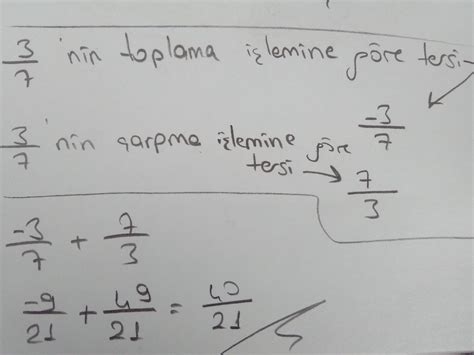 3/7 'nin toplama işlemine göre tersi
-3/7
3/7 'nin çarpma işlemine göre
tersi → 7/3
-3/7 + 7/3
-9/21 + 49/21 = 40/21